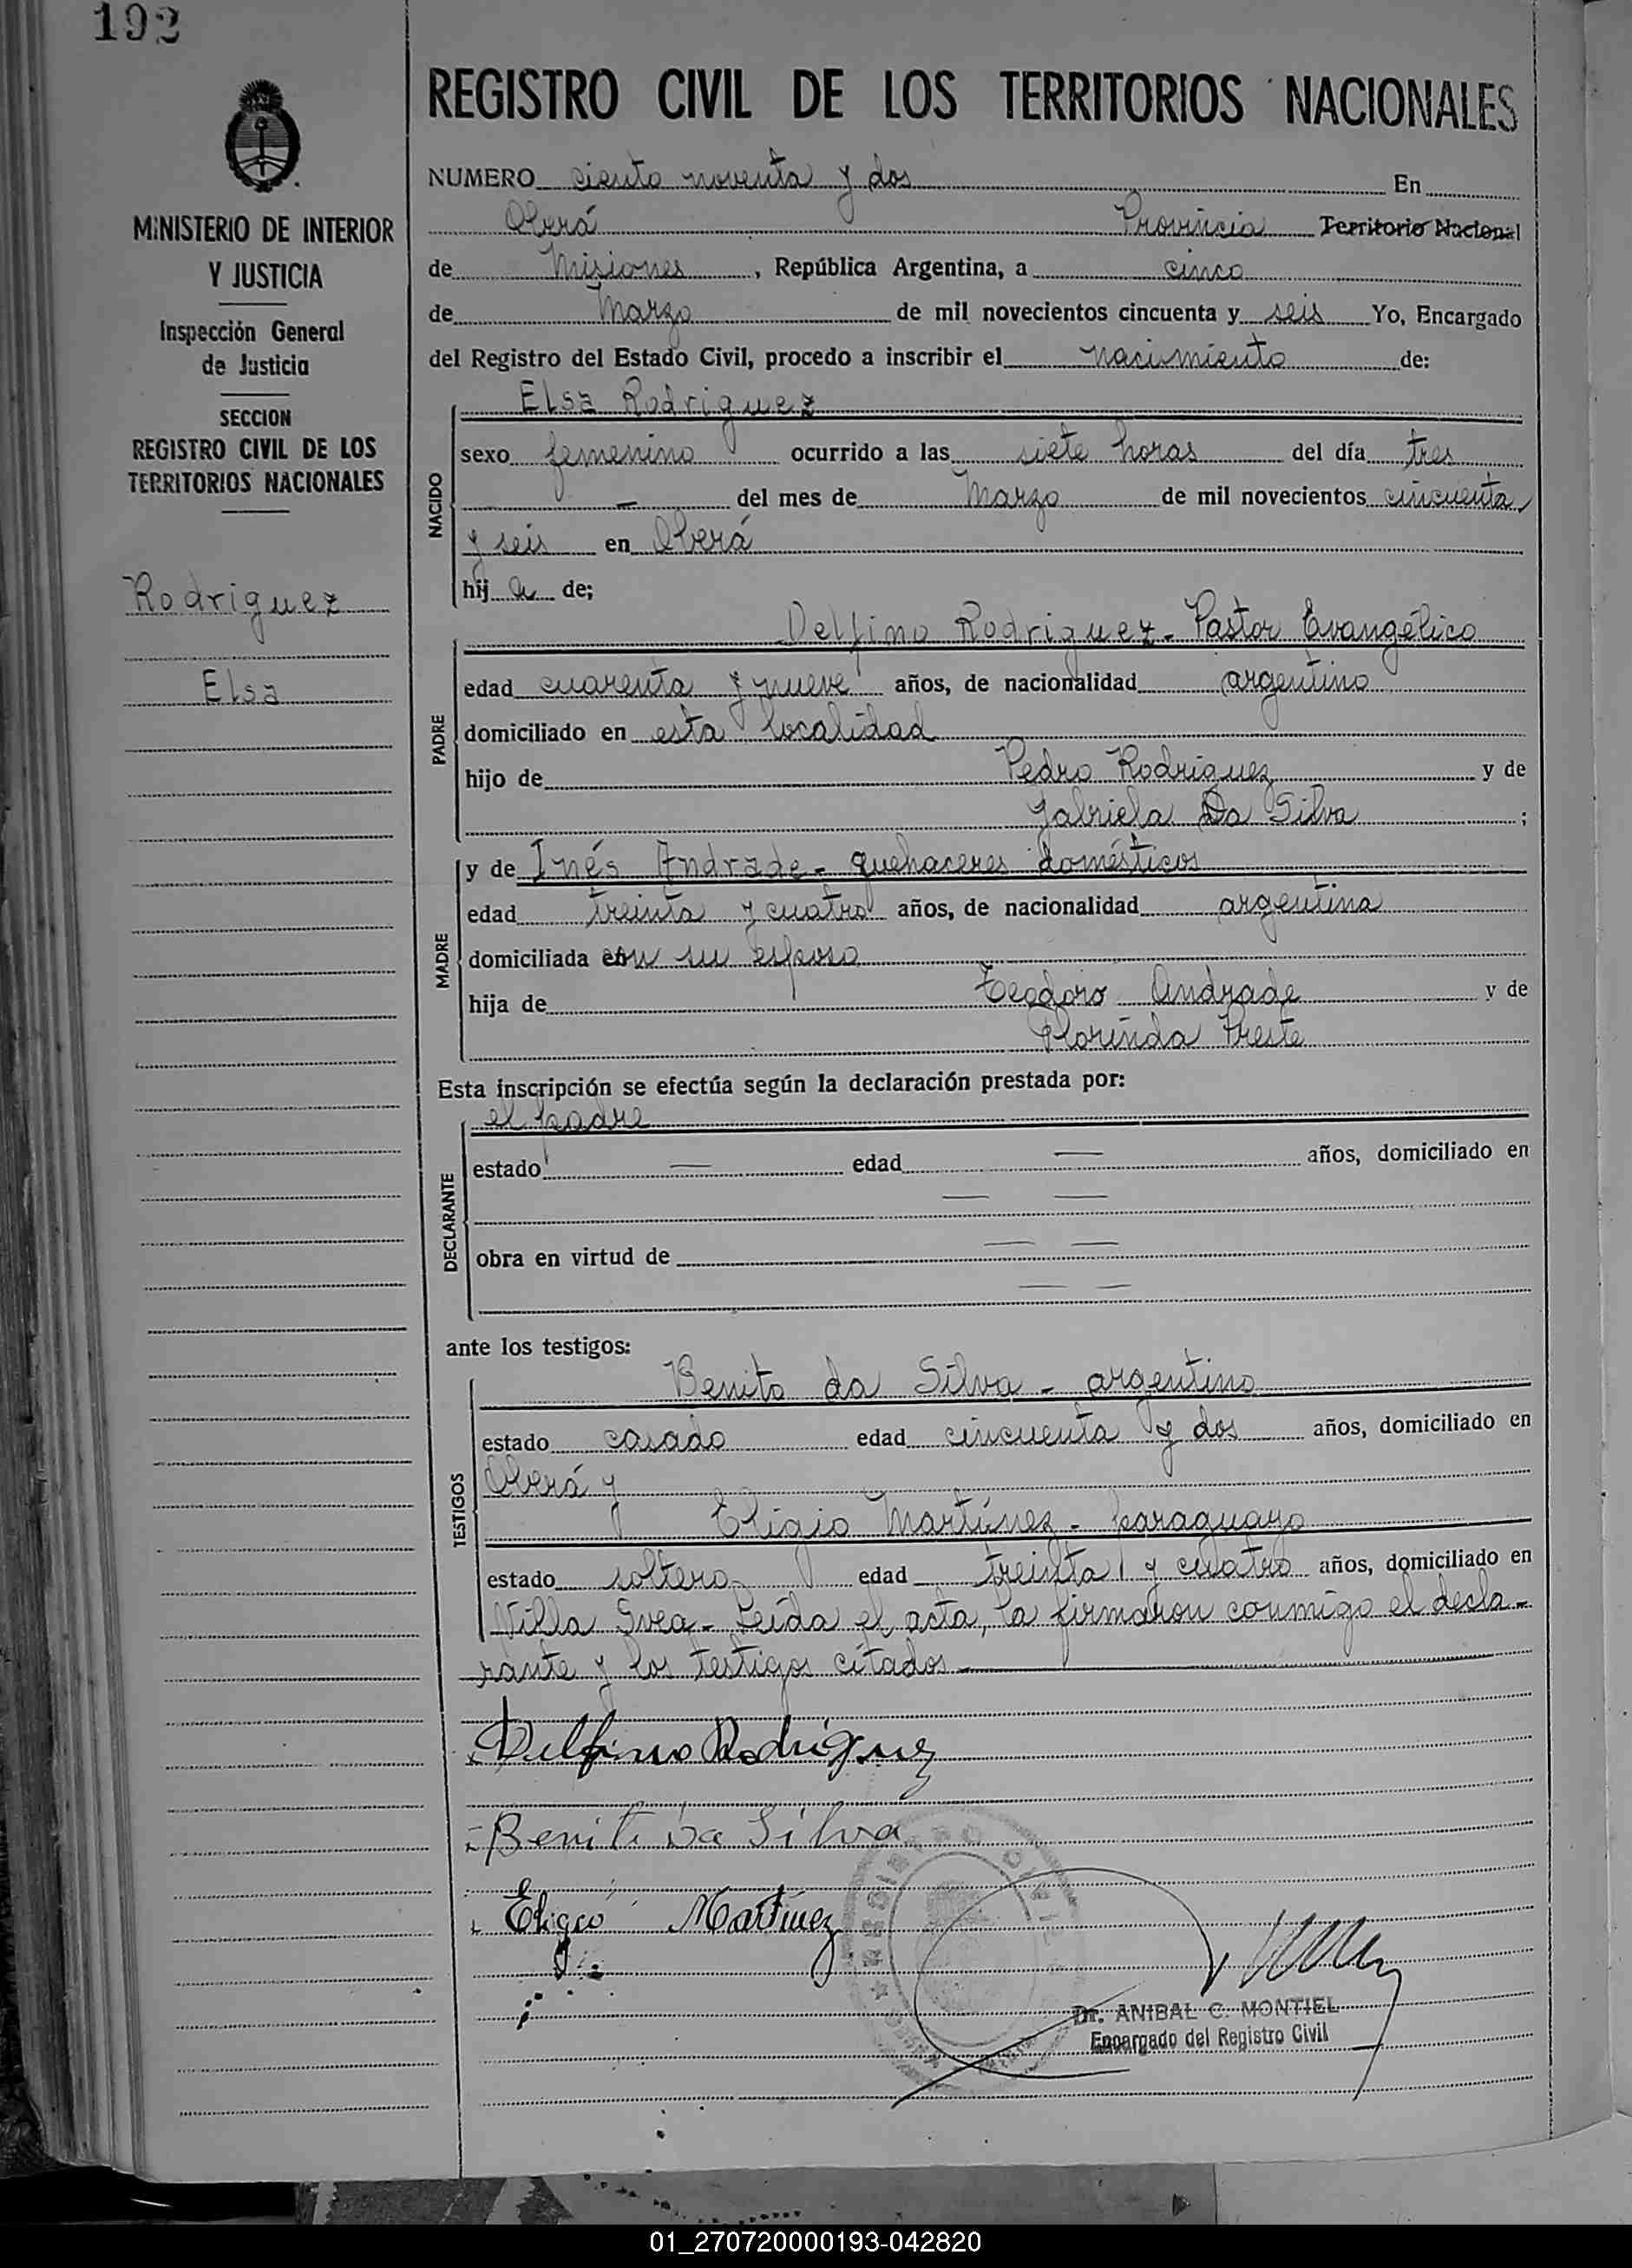 192
MINISTERIO DE INTERIOR
Y JUSTICIA
Inspección General
de Justicia
SECCION
REGISTRO CIVIL DE LOS
TERRITORIOS NACIONALES
Rodriguez
Elsa
REGISTRO CIVIL DE LOS TERRITORIOS NACIONALES
NUMERO ciento noventa y dos En
Oberá Provincia Territorio Nacional
de Misiones, República Argentina, a cinco
de Marzo de mil novecientos cincuenta y seis Yo, Encargado
del Registro del Estado Civil, procedo a inscribir el nacimiento de:
NACIDO
Elsa Rodriguez
sexo femenino ocurrido a las siete horas del día tres
— del mes de Marzo de mil novecientos cincuenta
y seis en Oberá
hija de;
PADRE
Delfino Rodriguez - Pastor Evangélico
edad cuarenta y nueve años, de nacionalidad argentino
domiciliado en esta localidad
hijo de Pedro Rodriguez y de
Gabriela Da Silva ;
MADRE
y de Inés Andrade - quehaceres domésticos
edad treinta y cuatro años, de nacionalidad argentina
domiciliada con su esposo
hija de Teodoro Andrade y de
Florinda Preste
Esta inscripción se efectúa según la declaración prestada por:
DECLARANTE
el padre
estado — edad — años, domiciliado en
— —
obra en virtud de — —
— —
ante los testigos:
TESTIGOS
Benito da Silva - argentino
estado casado edad cincuenta y dos años, domiciliado en
Oberá y
Eligio Martínez - paraguayo
estado soltero edad treinta y cuatro años, domiciliado en
Villa Svea - Leída el acta, la firmaron conmigo el decla-
rante y los testigos citados -
Delfino Rodriguez
Benito Da Silva
Eligio Martinez
REGISTRO CIVIL
Dr. ANIBAL C. MONTIEL
Encargado del Registro Civil
01_270720000193-042820